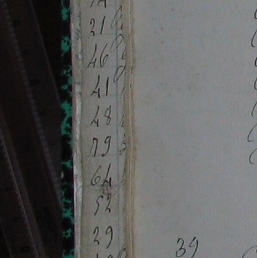 21
46
41
48
79
64
52
29
39